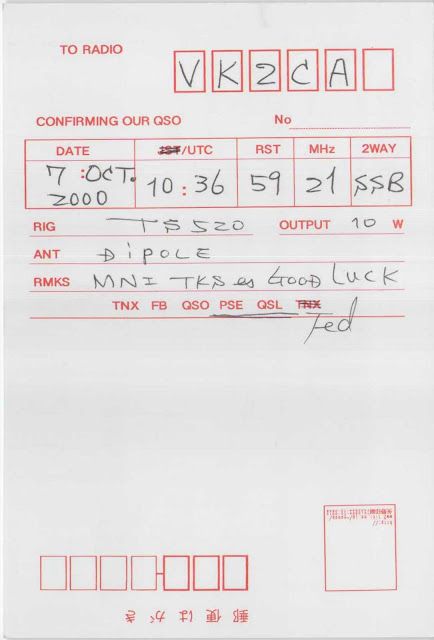 TO RADIO
VK2CA
CONFIRMING OUR QSO No
DATE JST/UTC RST MHz 2WAY
7 :OCT. 2000 10:36 59 21 SSB
RIG TS520 OUTPUT 10 W
ANT DiPOLE
RMKS MNI TKS es GOOD LUCK
TNX FB QSO PSE QSL TNX
Ted
郵便はがき